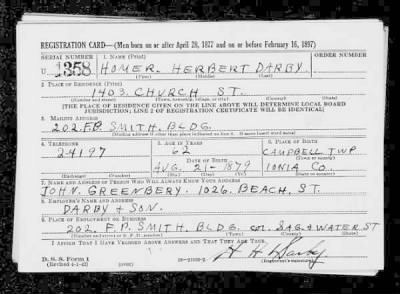 REGISTRATION CARD—(Men born on or after April 28, 1877 and on or before February 16, 1897)
SERIAL NUMBER 1. NAME (Print) ORDER NUMBER
U 1358 HOMER HERBERT DARBY
(First) (Middle) (Last)
2. PLACE OF RESIDENCE (Print)
1403 CHURCH ST.
(Number and street) (Town, township, village, or city) (County) (State)
[THE PLACE OF RESIDENCE GIVEN ON THE LINE ABOVE WILL DETERMINE LOCAL BOARD
JURISDICTION; LINE 2 OF REGISTRATION CERTIFICATE WILL BE IDENTICAL]
3. MAILING ADDRESS
202 F.P. SMITH. BLDG.
[Mailing address if other than place indicated on line 2. If same insert word same]
4. TELEPHONE 5. AGE IN YEARS 6. PLACE OF BIRTH
24197 62 CAMPBELL TWP
DATE OF BIRTH (Town or county)
AUG. 21- 1879 IONIA CO.
(Exchange) (Number) (Mo.) (Day) (Yr.) (State or country)
7. NAME AND ADDRESS OF PERSON WHO WILL ALWAYS KNOW YOUR ADDRESS
JOHN. GREENBERY. 1026. BEACH, ST.
8. EMPLOYER'S NAME AND ADDRESS
DARBY + SON.
9. PLACE OF EMPLOYMENT OR BUSINESS
202. F.P. SMITH. BLDG cor. SAG. & WATER ST
(Number and street or R. F. D. number) (Town) (County) (State)
I AFFIRM THAT I HAVE VERIFIED ABOVE ANSWERS AND THAT THEY ARE TRUE.
D. S. S. Form 1 H H Darby
(Revised 4-1-42) (Registrant's signature)